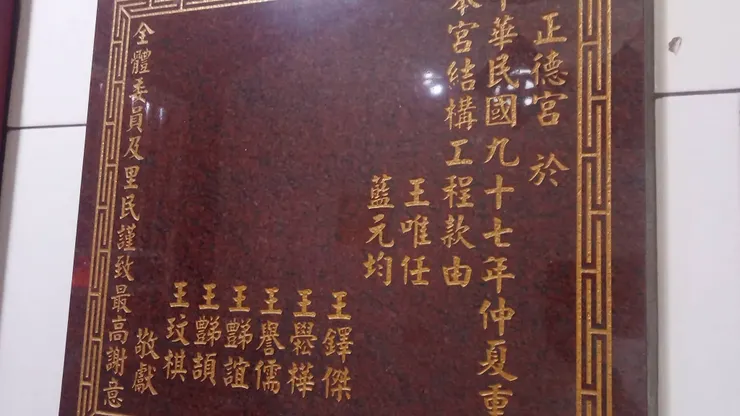 正德宮 於
中華民國九十七年仲夏重
本宮結構工程款由
王唯任
藍元均
王鐸傑
王樺
王譽儒
王誼
王頡
王玟祺
敬獻
全體委員及里民謹致最高謝意